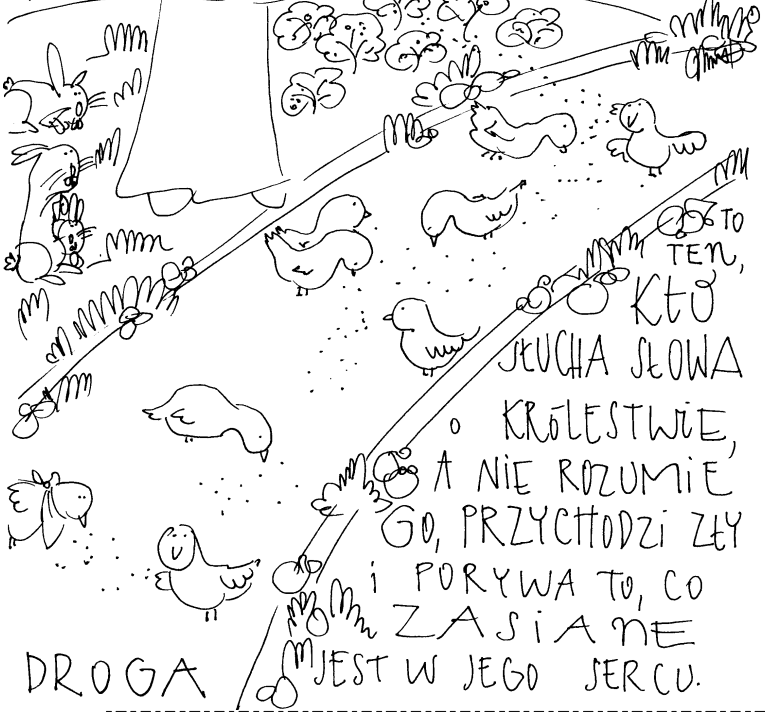 TO
TEN,
KTO
SŁUCHA SŁOWA
O KRÓLESTWIE,
A NIE ROZUMIE
GO, PRZYCHODZI ZŁY
i PORYWA TO, CO
ZASIANE
JEST W JEGO SERCU.
DROGA